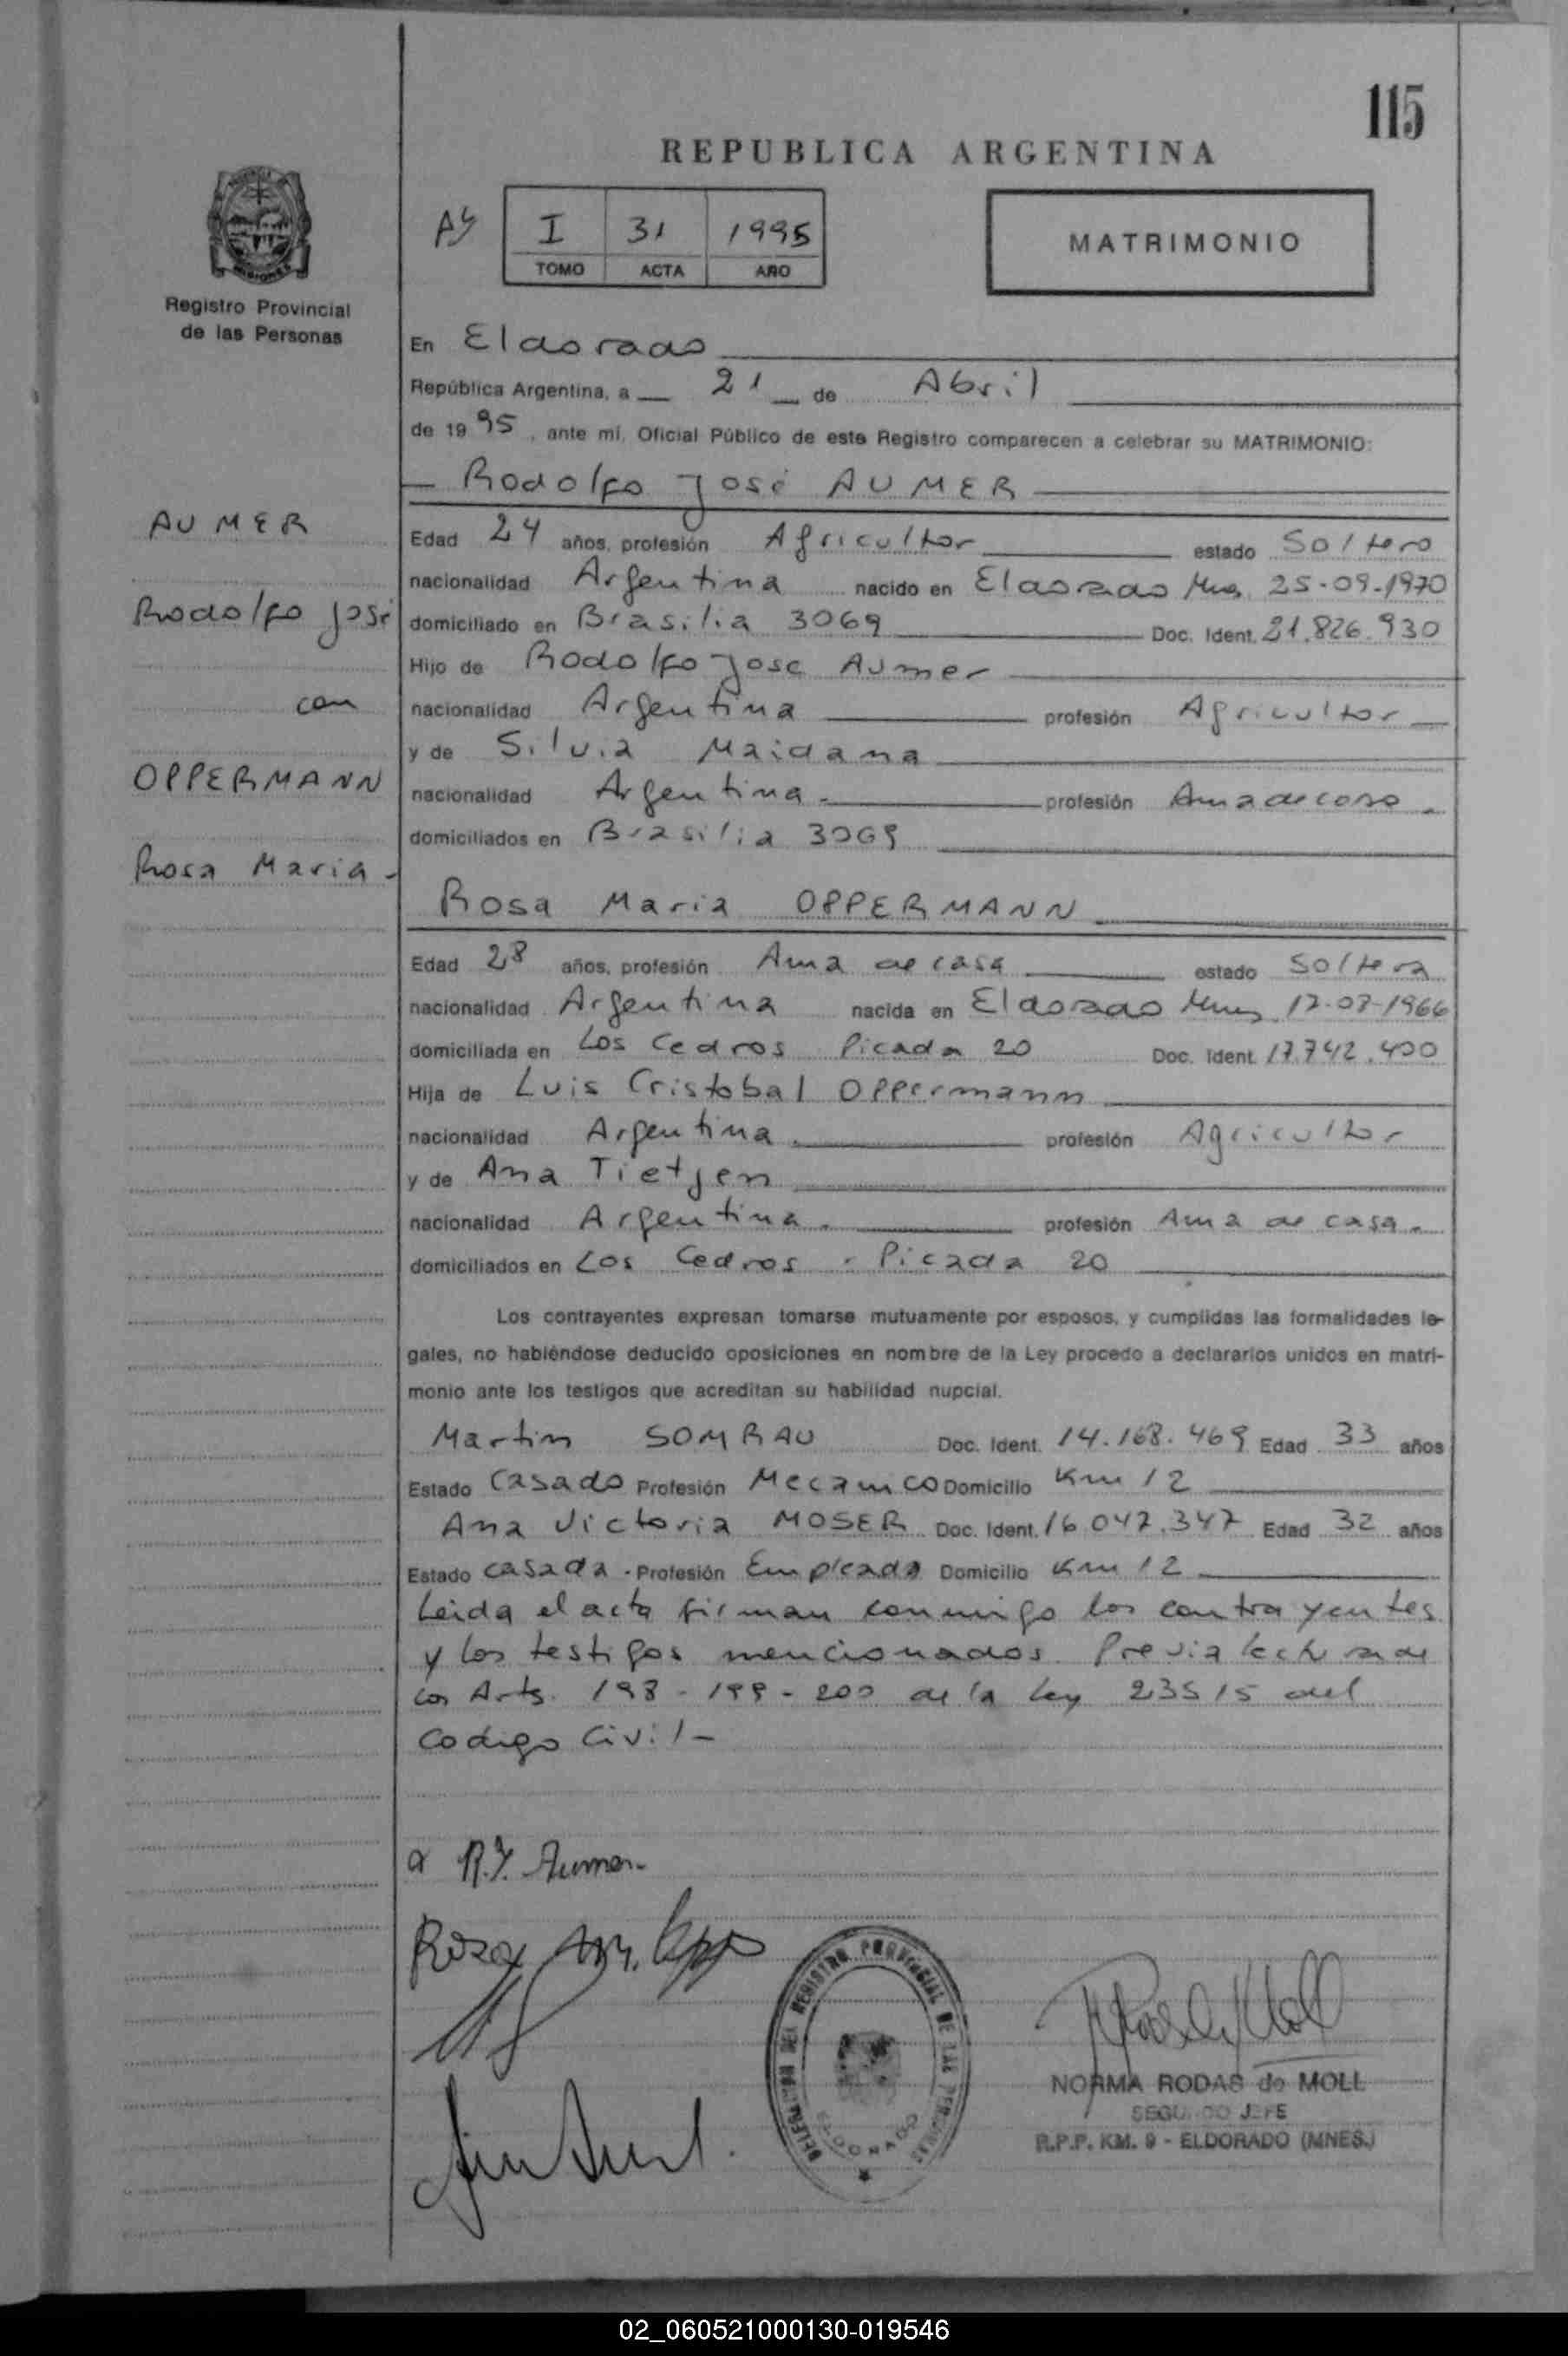 115
REPUBLICA ARGENTINA
I 31 1995
TOMO ACTA AÑO
MATRIMONIO
Registro Provincial
de las Personas
En Eldorado
República Argentina, a 21 de Abril
de 1995, ante mí, Oficial Público de este Registro comparecen a celebrar su MATRIMONIO:
Rodolfo José AUMER
AUMER
Rodolfo José
con
OPPERMANN
Rosa Maria -
Edad 24 años, profesión Agricultor estado Soltero
nacionalidad Argentina nacido en Eldorado Mnes 25-09-1970
domiciliado en Brasilia 3069 Doc. Ident. 21.826.930
Hijo de Rodolfo Jose Aumer
nacionalidad Argentina profesión Agricultor
y de Silvia Maidana
nacionalidad Argentina.- profesión Ama de casa.
domiciliados en Brasilia 3069
Rosa Maria OPPERMANN
Edad 28 años, profesión Ama de casa estado Soltera
nacionalidad Argentina nacida en Eldorado Mnes 17-07-1966
domiciliada en Los Cedros Picada 20 Doc. Ident. 17.742.400
Hija de Luis Cristobal Oppermann
nacionalidad Argentina. profesión Agricultor
y de Ana Tietjen
nacionalidad Argentina. profesión Ama de casa.
domiciliados en Los Cedros - Picada 20
Los contrayentes expresan tomarse mutuamente por esposos, y cumplidas las formalidades le-
gales, no habiéndose deducido oposiciones en nombre de la Ley procedo a declararlos unidos en matri-
monio ante los testigos que acreditan su habilidad nupcial.
Martin SOMRAU Doc. Ident. 14.168.469 Edad 33 años
Estado Casado Profesión Mecanico Domicilio Km 12
Ana Victoria MOSER Doc. Ident. 16.047.347 Edad 32 años
Estado casada - Profesión Empleada Domicilio Km 12
Leida el acta firman conmigo los contrayentes
y los testigos mencionados. Previa lectura de
los Arts. 198 - 199 - 200 de la Ley 23515 del
Codigo Civil -
R.J. Aumer.
DELEGACION DEL REGISTRO PROVINCIAL DE LAS PERSONAS
ELDORADO
NORMA RODAS de MOLL
SEGUNDO JEFE
R.P.P. KM. 9 - ELDORADO (MNES.)
02_060521000130-019546